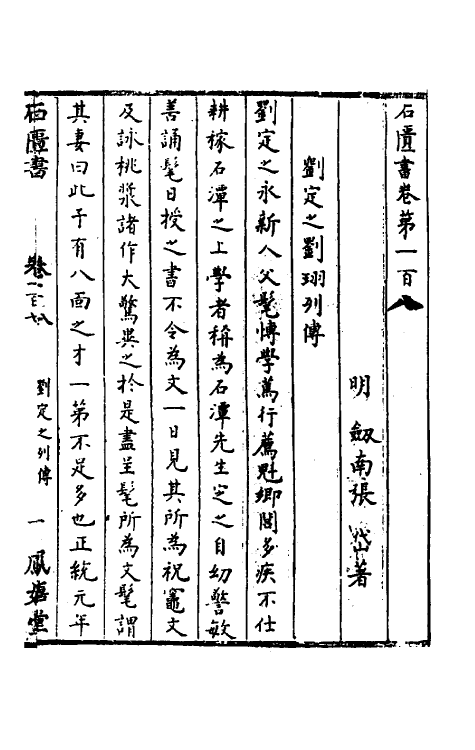 石匱書卷第一百八
明 劔南張 岱著
劉定之劉珝列傳
劉定之永新人父髦博學篤行薦魁鄉闈多疾不仕
耕稼石潭之上學者稱為石潭先生定之自幼警敏
善誦髦日授之書不令為文一日見其所為祝竈文
及詠桃漿諸作大驚異之於是盡呈髦所為文髦謂
其妻曰此子有八面之才一第不足多也正統元年
石匱書 卷一百八 劉定之列傳 一 鳳嬉堂